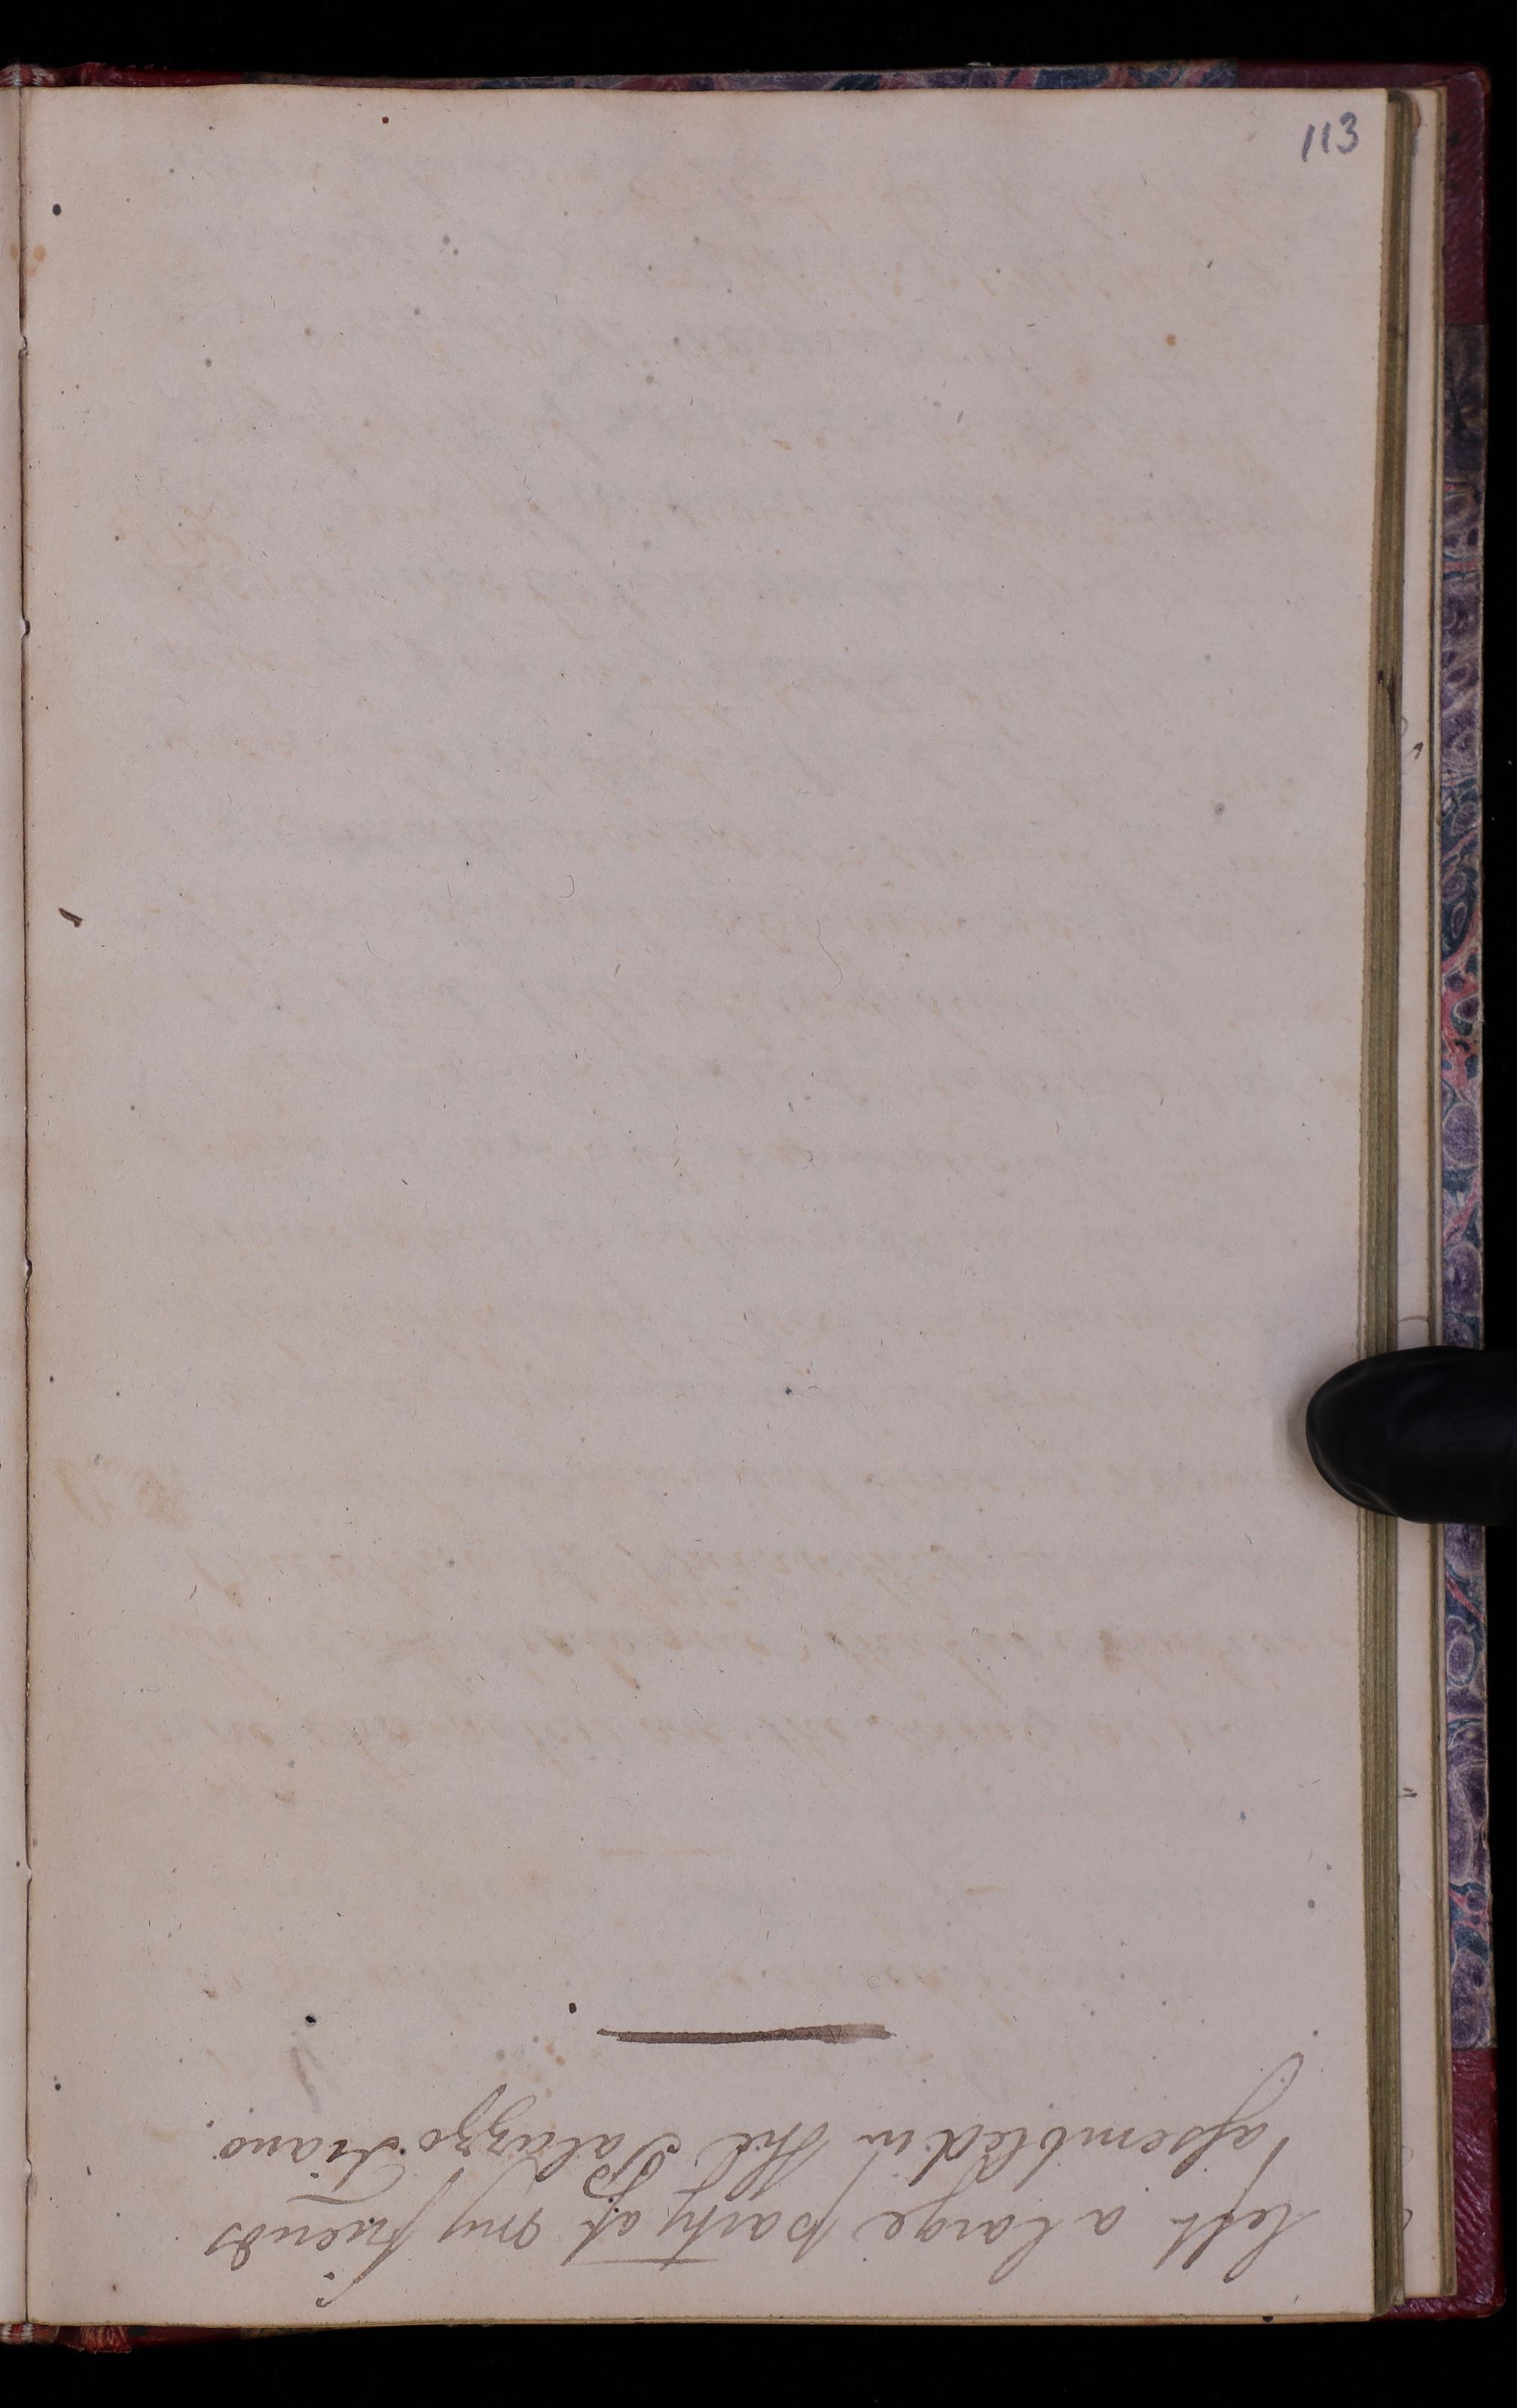 113
left a large party of my friends
assembled in the Palazzo Fiano.